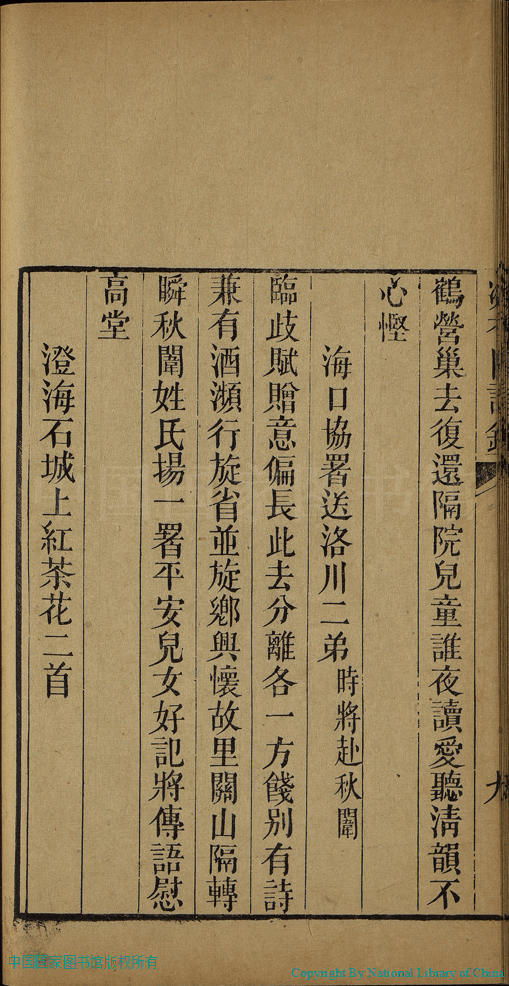 鶴營巢去復還隔院兒童誰夜讀愛聽清韻不
心慳
海口協署送洛川二弟時將赴秋闈
臨歧賦贈意偏長此去分離各一方餞別有詩
兼有酒瀕行旋省並旋鄉興懷故里關山隔轉
瞬秋闈姓氏揚一署平安兒女好記將傳語慰
高堂
澄海石城上紅茶花二首
中国国家图书馆版权所有
Copyright By National Library of China